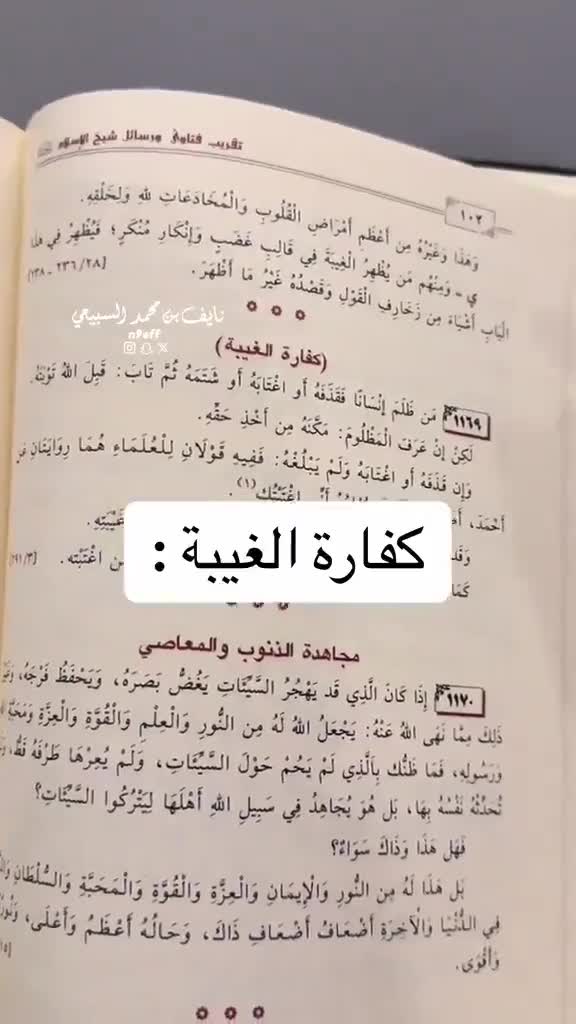 تقريب فتاوى ورسائل شيخ الإسلام
١٠٢
وَهَذَا وَغَيْرُهُ مِن أَعْظَمِ أَمْرَاضِ الْقُلُوبِ وَالْمُخَادَعَاتِ لِلهِ وَلِخَلْقِهِ.
ي - وَمِنْهُم مَن يُظْهِرُ الْغِيبَةَ فِي قَالِبِ غَضَبٍ وَإِنْكَارِ مُنْكَرٍ؛ فَيُظْهِرُ فِي هَذَا
الْبَابِ أَشْيَاءَ مِن زَخَارِفِ الْقَوْلِ وَقَصْدُهُ غَيْرُ مَا أَظْهَرَ. [٢٨/ ٢٣٦ - ٢٣٨]
نايف بن محمد السبيعي
n9eff
(كفارة الغيبة)
١١٦٩ مَن ظَلَمَ إنْسَانًا فَقَذَفَهُ أَو اغْتَابَهُ أَو شَتَمَهُ ثُمَّ تَابَ: قَبِلَ اللهُ تَوْبَتَهُ.
لَكِنْ إنْ عَرَفَ الْمَظْلُومَ: مَكَّنَهُ مِن أَخْذِ حَقِّهِ.
وَإِن قَذَفَهُ أَو اغْتَابَهُ وَلَمْ يَبْلُغْهُ: فَفِيهِ قَوْلَانِ لِلْعُلَمَاءِ هُمَا رِوَايَتَانِ عَن
أَحْمَدَ، اغْتَبْتُك (١).
وَقَد غِيْبَتِهِ.
كَمَا مَن اغْتَبْته. [٣/ ٢٩١]
كفارة الغيبة :
مجاهدة الذنوب والمعاصي
١١٧٠ إِذَا كَانَ الَّذِي قَد يَهْجُرُ السَّيِّئَاتِ يَغُضُّ بَصَرَهُ، وَيَحْفَظُ فَرْجَهُ، وَغَيْرَ
ذَلِكَ مِمَّا نَهَى اللهُ عَنْهُ: يَجْعَلُ اللهُ لَهُ مِن النُّورِ وَالْعِلْمِ وَالْقُوَّةِ وَالْعِزَّةِ وَمَحَبَّةِ
وَرَسُولِهِ، فَمَا ظَنُّك بِالَّذِي لَمْ يَحُم حَوْلَ السَّيِّئَاتِ، وَلَمْ يُعِرْهَا طَرْفَهُ قَطُّ،
تُحَدِّثْهُ نَفْسُهُ بِهَا، بَل هُوَ يُجَاهِدُ فِي سَبِيلِ اللهِ أَهْلَهَا لِيَتْرُكُوا السَّيِّئَاتِ؟
فَهَل هَذَا وَذَاكَ سَوَاءٌ؟
بَل هَذَا لَهُ مِن النُّورِ وَالْإِيمَانِ وَالْعِزَّةِ وَالْقُوَّةِ وَالْمَحَبَّةِ وَالسُّلْطَانِ
فِي الدُّنْيَا وَالْآخِرَةِ أَضْعَافُ أَضْعَافِ ذَاكَ، وَحَالُهُ أَعْظَمُ وَأَعْلَى،
وَأَقْوَى.